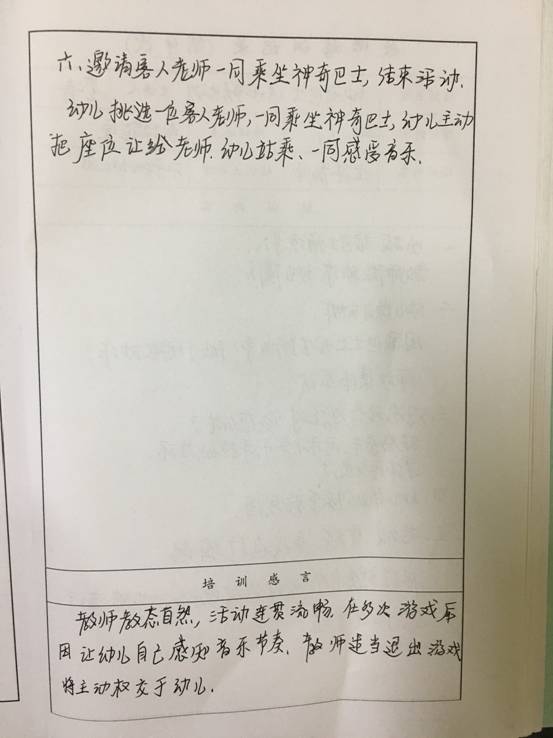 六、邀请客人老师一同乘坐神奇巴士,结束活动.
幼儿挑选一位客人老师,一同乘坐神奇巴士,幼儿主动
把座位让给老师.幼儿站乘、一同感受音乐.
培训感言
教师教态自然,活动连贯流畅.在多次游戏后
因让幼儿自己感知音乐节奏.教师适当退出游戏
将主动权交于幼儿.